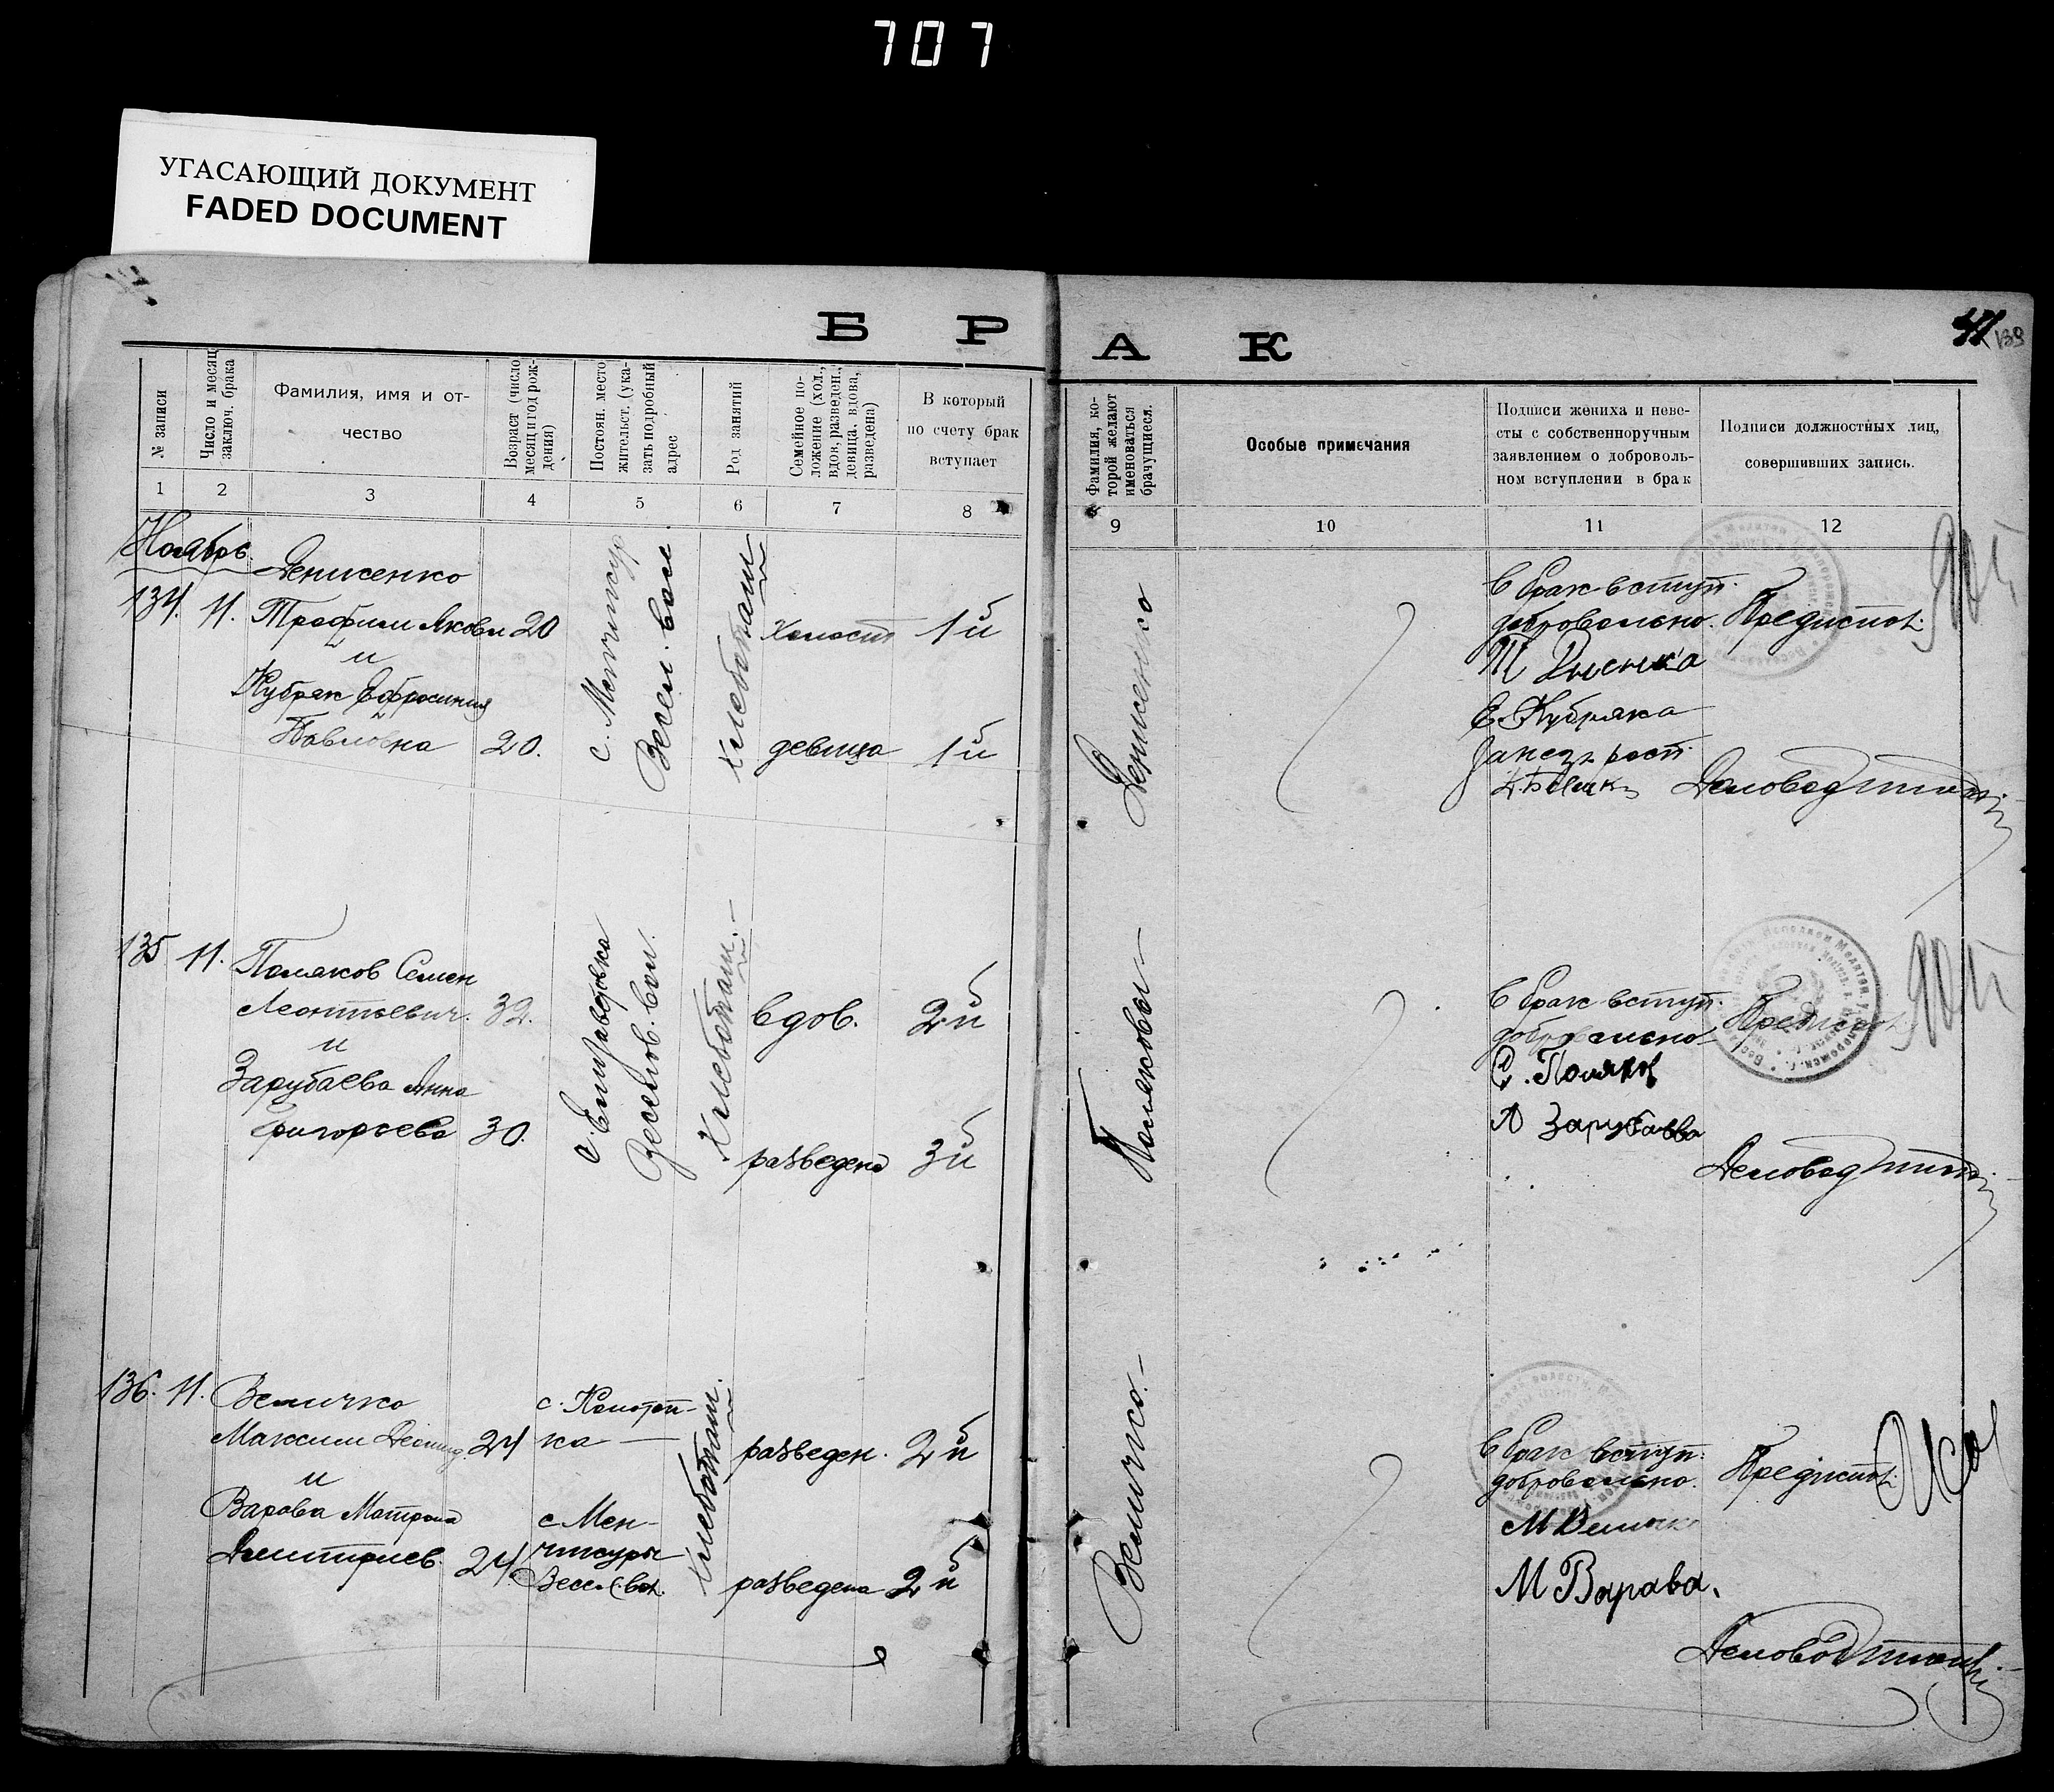 707
УГАСАЮЩИЙ ДОКУМЕНТ
FADED DOCUMENT
Б Р А К
139
№ записи
Число и месяц
заключ. брака
Фамилия, имя и от-
чество
Возраст (число
месяц и год рож-
дения)
Постоян. место
жительст. (ука-
зать подробный
адрес
Род занятий
Семейное по-
ложение (хол.,
вдов. разведен.,
девица. вдова,
разведена)
В который
по счету брак
вступает
Фамилия, ко-
торой желают
именоваться
брачущиеся.
Особые примечания
Подписи жениха и неве-
сты с собственноручным
заявлением о доброволь-
ном вступлении в брак
Подписи должностных лиц,
совершивших запись.
1 2 3 4 5 6 7 8 9 10 11 12
Ноябрь.
134. 11.
Денисенко
Трофим Яковл 20
и
Кубрак Ефросиния
Павловна 20.
с. Менчикур
Весел. вол
хлебопаш
холост 1й
девица 1й
Денисенко
В брак вступ.
добровольно.
Е. Кубрака
Предиспол.
Деловод
135 11.
Поляков Семен
Леонтьевич. 32.
и
Зарубаева Анна
Григорьева 30.
с. Елизаветовка
Веселов. вол.
Хлебопаш.
вдов. 2й
разведена 3й
Поляковы
В брак вступ.
добровольно
С. Поляков
А Зарубаева
Предиспол.
Деловод
136. 11.
Величко
Максим Леонид. 24
и
Варава Матрона
Дмитриев. 24
с. Менчикуры
Весел. вол.
хлебопаш.
разведен. 2й
разведена 2й
Величко.
В брак вступ.
добровольно.
М Величко
М Варава.
Предиспол.
Деловод